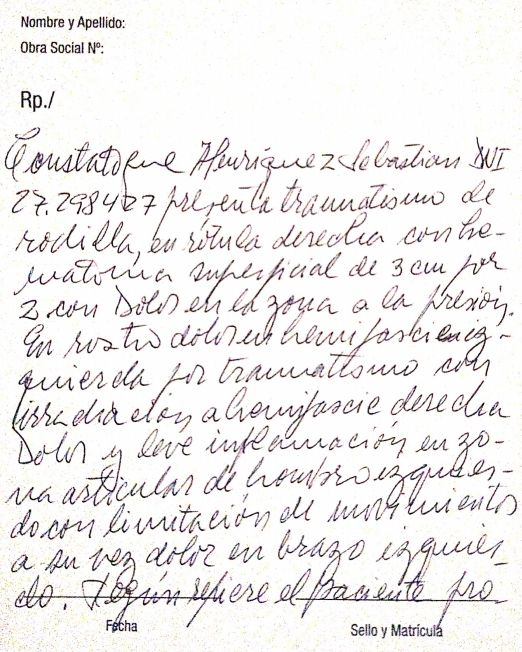 Nombre y Apellido:
Obra Social Nº:
Rp./
Constato que Henríquez Sebastian DNI
27.298427 presenta traumatismo de
rodilla, en rótula derecha con he-
matoma superficial de 3 cm por
2 con Dolor en la zona a la presión.
En rostro dolor en hemifascie iz-
quierda por traumatismo con
irradiación a hemifascie derecha
Dolor y leve inflamación en zo-
na articular de hombro izquier-
do con limitación de movimientos
a su vez dolor en brazo izquier-
do. Según refiere el paciente pro
Fecha
Sello y Matrícula